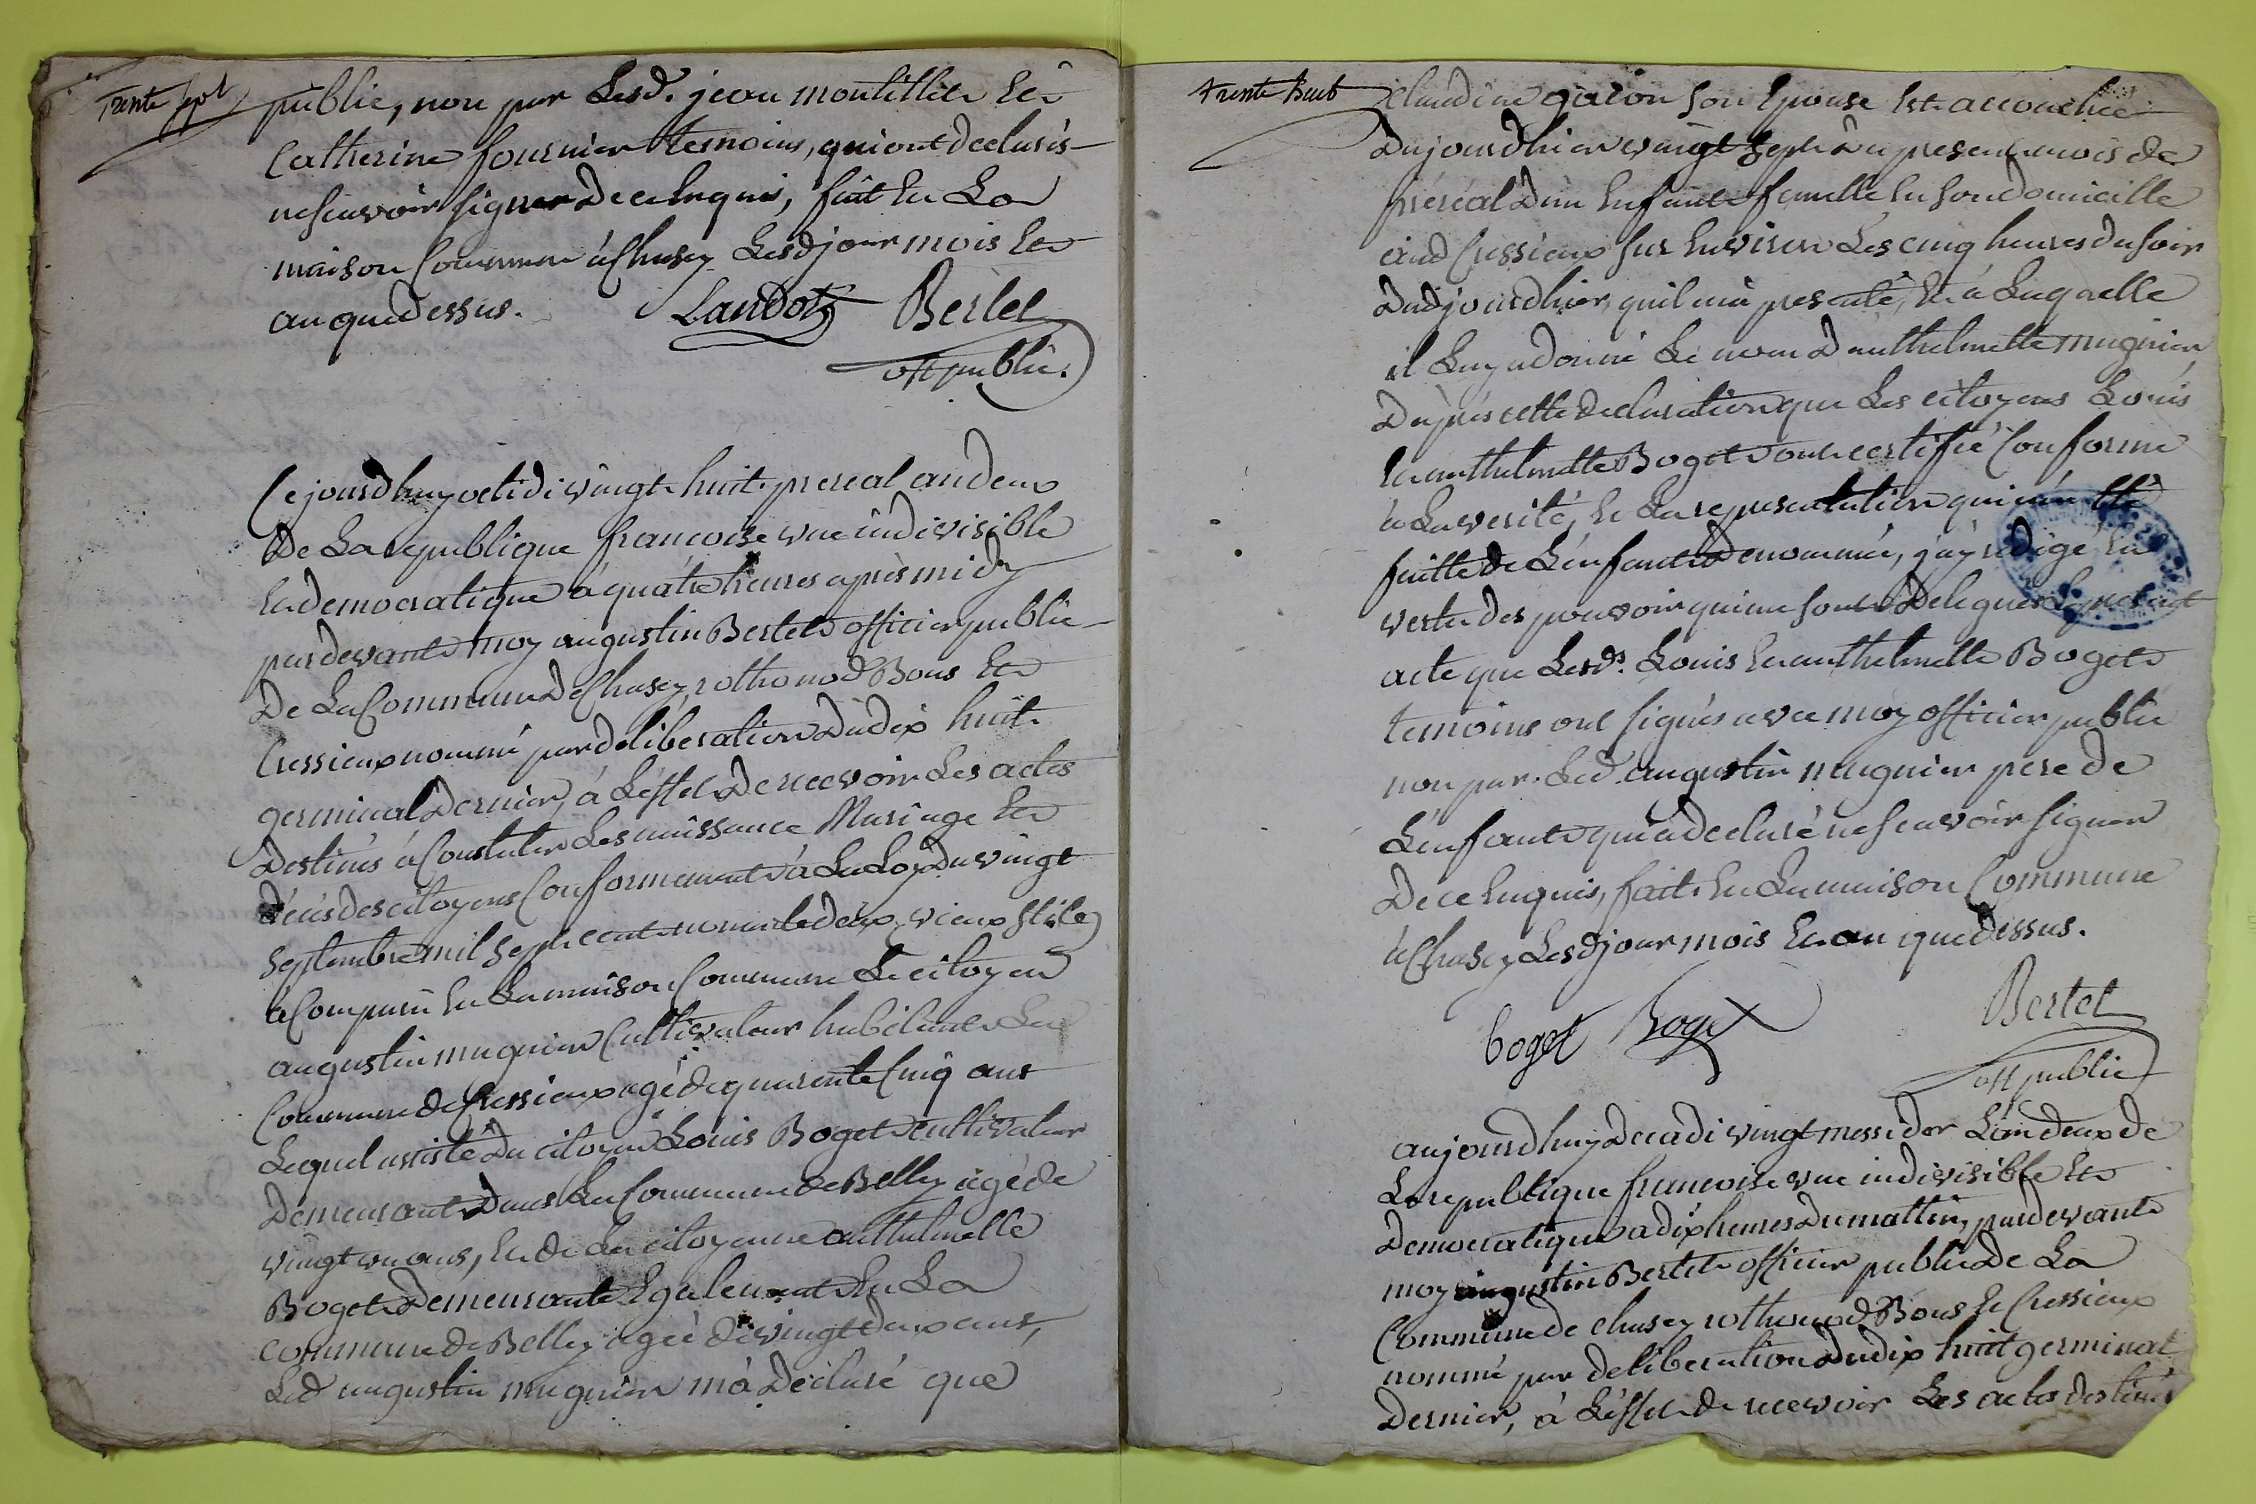 Trente sept
public, non par Lesd. jean montillier et
Catherine fournier temoins, qui ont declarés
ne scavoir signer de ce enquis, fait en La
maison Commune à Chasey Lesd jour mois et
an que dessus. Landoz Bertet
off public.
Cejourdhuy octidi vingt huit prereal an deux
de La republique francoise une indivisible
et democratique à quatre heures après midy
pardevant moy augustin Bertet officier public
de La Commune de Chasey, rothonod Bons et
Cressieux nommé par deliberation du dix huit
germinal dernier, à L'effet de recevoir Les actes
destinés à Constater Les naissance Mariage et
décès des citoyens Conformement à La Loy du vingt
septembre mil sept cent nonante deux, vieux stile
à Comparu en La maison Commune Le citoyen
augustin mugnier Cultivateur habitant La
Commune de Cressieux agé de quarante Cinq ans
Lequel assisté du citoyen Louis Boget cultivateur
demeurant dans La Commune de Belley agé de
vingt un ans, et de La citoyenne anthelmette
Boget demeurante Egalement En La
commune de Belley agée de vingt deux ans,
Led augustin mugnier m'à déclaré que
trente huit
Claudine son Epouse Est accouchée
du jourdhier vingt sept du present mois de
préréal d'un Enfant femelle En son domicille
aud Cressieux sur Environ Les cinq heures du soir
dud jourdhier, quil m'a presenté, et à Laquelle
il Luy a donné Le nom d'anthelmette mugnier,
d'après cette declaration que Les citoyens Louis
et anthelmette Boget ont certifié Conforme
à La verité, et La representation qui m'a été
faitte de L'enfant denommée, j'ay rédigé en
vertu des pouvoir qui me sont delegués Le present
acte que Lesds. Louis et anthelmette Boget
temoins ont signés avec moy officier public
non par Led augustin mugnier pere de
L'enfant qui a declaré ne scavoir signer
de ce enquis, fait En La maison Commune
à Chasey Lesd jour mois et an que dessus.
boget Boget Bertet
off public
aujourdhuy decadi vingt messidor L'an deux de
La republique francoise une indivisible et
democratique a dix heures du mattin, pardevant
moy augustin Bertet officier public de La
Commune de chasey rothonod Bons et Cressieux
nommé par deliberation du dix huit germinal
dernier, à L'effet de recevoir Les actes destinés